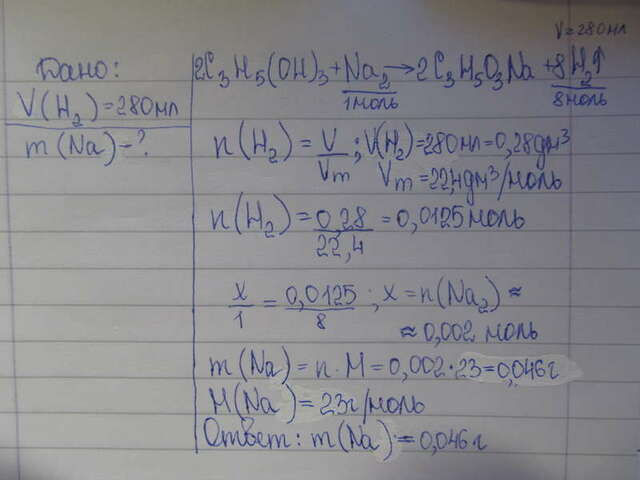 V=280мл
Дано:
V(H₂)=280мл
m(Na)-?
2C₃H₅(OH)₃+Na₂→2C₃H₅O₃Na+8H₂↑
1моль 8моль
n(H₂)=V/Vm; V(H₂)=280мл=0,28дм³
Vm=22,4дм³/моль
n(H₂)=0,28/22,4=0,0125моль
x/1=0,0125/8; x=n(Na₂)≈
≈0,002 моль
m(Na)=n·M=0,002·23=0,046г
M(Na)=23г/моль
Ответ: m(Na)=0,046г